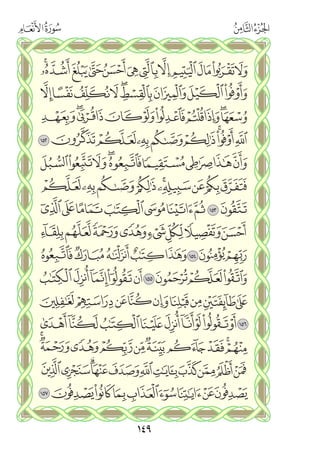 الجزء الثامن
سورة الأنعام
وَلَا تَقْرَبُوا۟ مَالَ ٱلْيَتِيمِ إِلَّا بِٱلَّتِى هِىَ أَحْسَنُ حَتَّىٰ يَبْلُغَ أَشُدَّهُۥ
وَأَوْفُوا۟ ٱلْكَيْلَ وَٱلْمِيزَانَ بِٱلْقِسْطِ لَا نُكَلِّفُ نَفْسًا إِلَّا
وُسْعَهَا وَإِذَا قُلْتُمْ فَٱعْدِلُوا۟ وَلَوْ كَانَ ذَا قُرْبَىٰ وَبِعَهْدِ
ٱللَّهِ أَوْفُوا۟ ذَٰلِكُمْ وَصَّىٰكُم بِهِۦ لَعَلَّكُمْ تَذَكَّرُونَ ١٥٢
وَأَنَّ هَٰذَا صِرَٰطِى مُسْتَقِيمًا فَٱتَّبِعُوهُ وَلَا تَتَّبِعُوا۟ ٱلسُّبُلَ
فَتَفَرَّقَ بِكُمْ عَن سَبِيلِهِۦ ذَٰلِكُمْ وَصَّىٰكُم بِهِۦ لَعَلَّكُمْ
تَتَّقُونَ ١٥٣ ثُمَّ ءَاتَيْنَا مُوسَى ٱلْكِتَٰبَ تَمَامًا عَلَى ٱلَّذِىٓ
أَحْسَنَ وَتَفْصِيلًا لِّكُلِّ شَىْءٍ وَهُدًى وَرَحْمَةً لَّعَلَّهُم بِلِقَآءِ
رَبِّهِمْ يُؤْمِنُونَ ١٥٤ وَهَٰذَا كِتَٰبٌ أَنزَلْنَٰهُ مُبَارَكٌ فَٱتَّبِعُوهُ
وَٱتَّقُوا۟ لَعَلَّكُمْ تُرْحَمُونَ ١٥٥ أَن تَقُولُوٓا۟ إِنَّمَآ أُنزِلَ ٱلْكِتَٰبُ
عَلَىٰ طَآئِفَتَيْنِ مِن قَبْلِنَا وَإِن كُنَّا عَن دِرَاسَتِهِمْ لَغَٰفِلِينَ
١٥٦ أَوْ تَقُولُوا۟ لَوْ أَنَّآ أُنزِلَ عَلَيْنَا ٱلْكِتَٰبُ لَكُنَّآ أَهْدَىٰ
مِنْهُمْ فَقَدْ جَآءَكُم بَيِّنَةٌ مِّن رَّبِّكُمْ وَهُدًى وَرَحْمَةٌ
فَمَنْ أَظْلَمُ مِمَّن كَذَّبَ بِـَٔايَٰتِ ٱللَّهِ وَصَدَفَ عَنْهَا سَنَجْزِى ٱلَّذِينَ
يَصْدِفُونَ عَنْ ءَايَٰتِنَا سُوٓءَ ٱلْعَذَابِ بِمَا كَانُوا۟ يَصْدِفُونَ ١٥٧
١٤٩